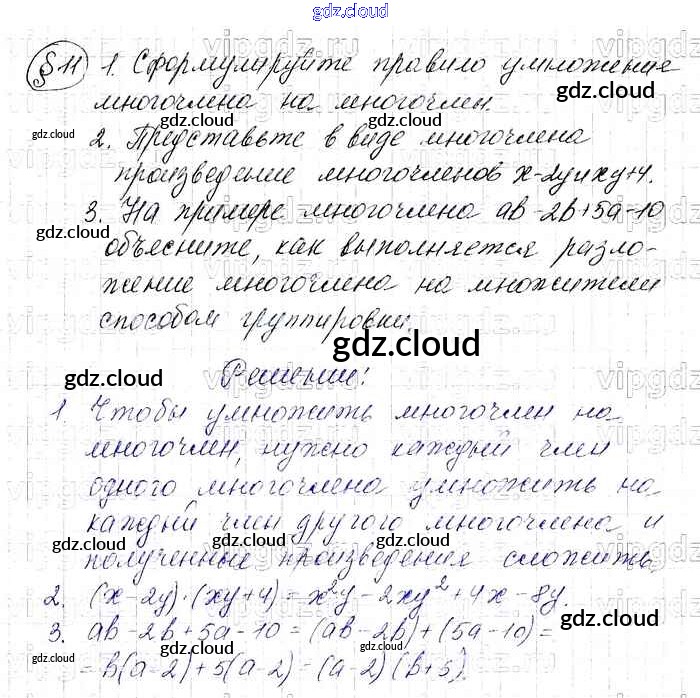 gdz.cloud
§ 11 1. Сформулируйте правило умножения
многочлена на многочлен.
gdz.cloud
gdz.cloud gdz.cloud
2. Представьте в виде многочлена
произведение многочленов x-2y и xy+4.
gdz.cloud
3. На примере многочлена ab-2b+5a-10
gdz.cloud
объясните, как выполняется разло-
жение многочлена на множители
способом группировки.
gdz.cloud
Решении:
gdz.cloud
1. Чтобы умножить многочлен на
многочлен, нужно каждый член
одного многочлена умножить на
каждый член другого многочлена и
gdz.cloud gdz.cloud gdz.cloud
полученные произведения сложить.
2. (x-2y)·(xy+4)=x²y-2xy²+4x-8y.
gdz.cloud
3. ab-2b+5a-10=(ab-2b)+(5a-10)=
gdz.cloud gdz.cloud
=b(a-2)+5(a-2)=(a-2)(b+5).
gdz.cloud